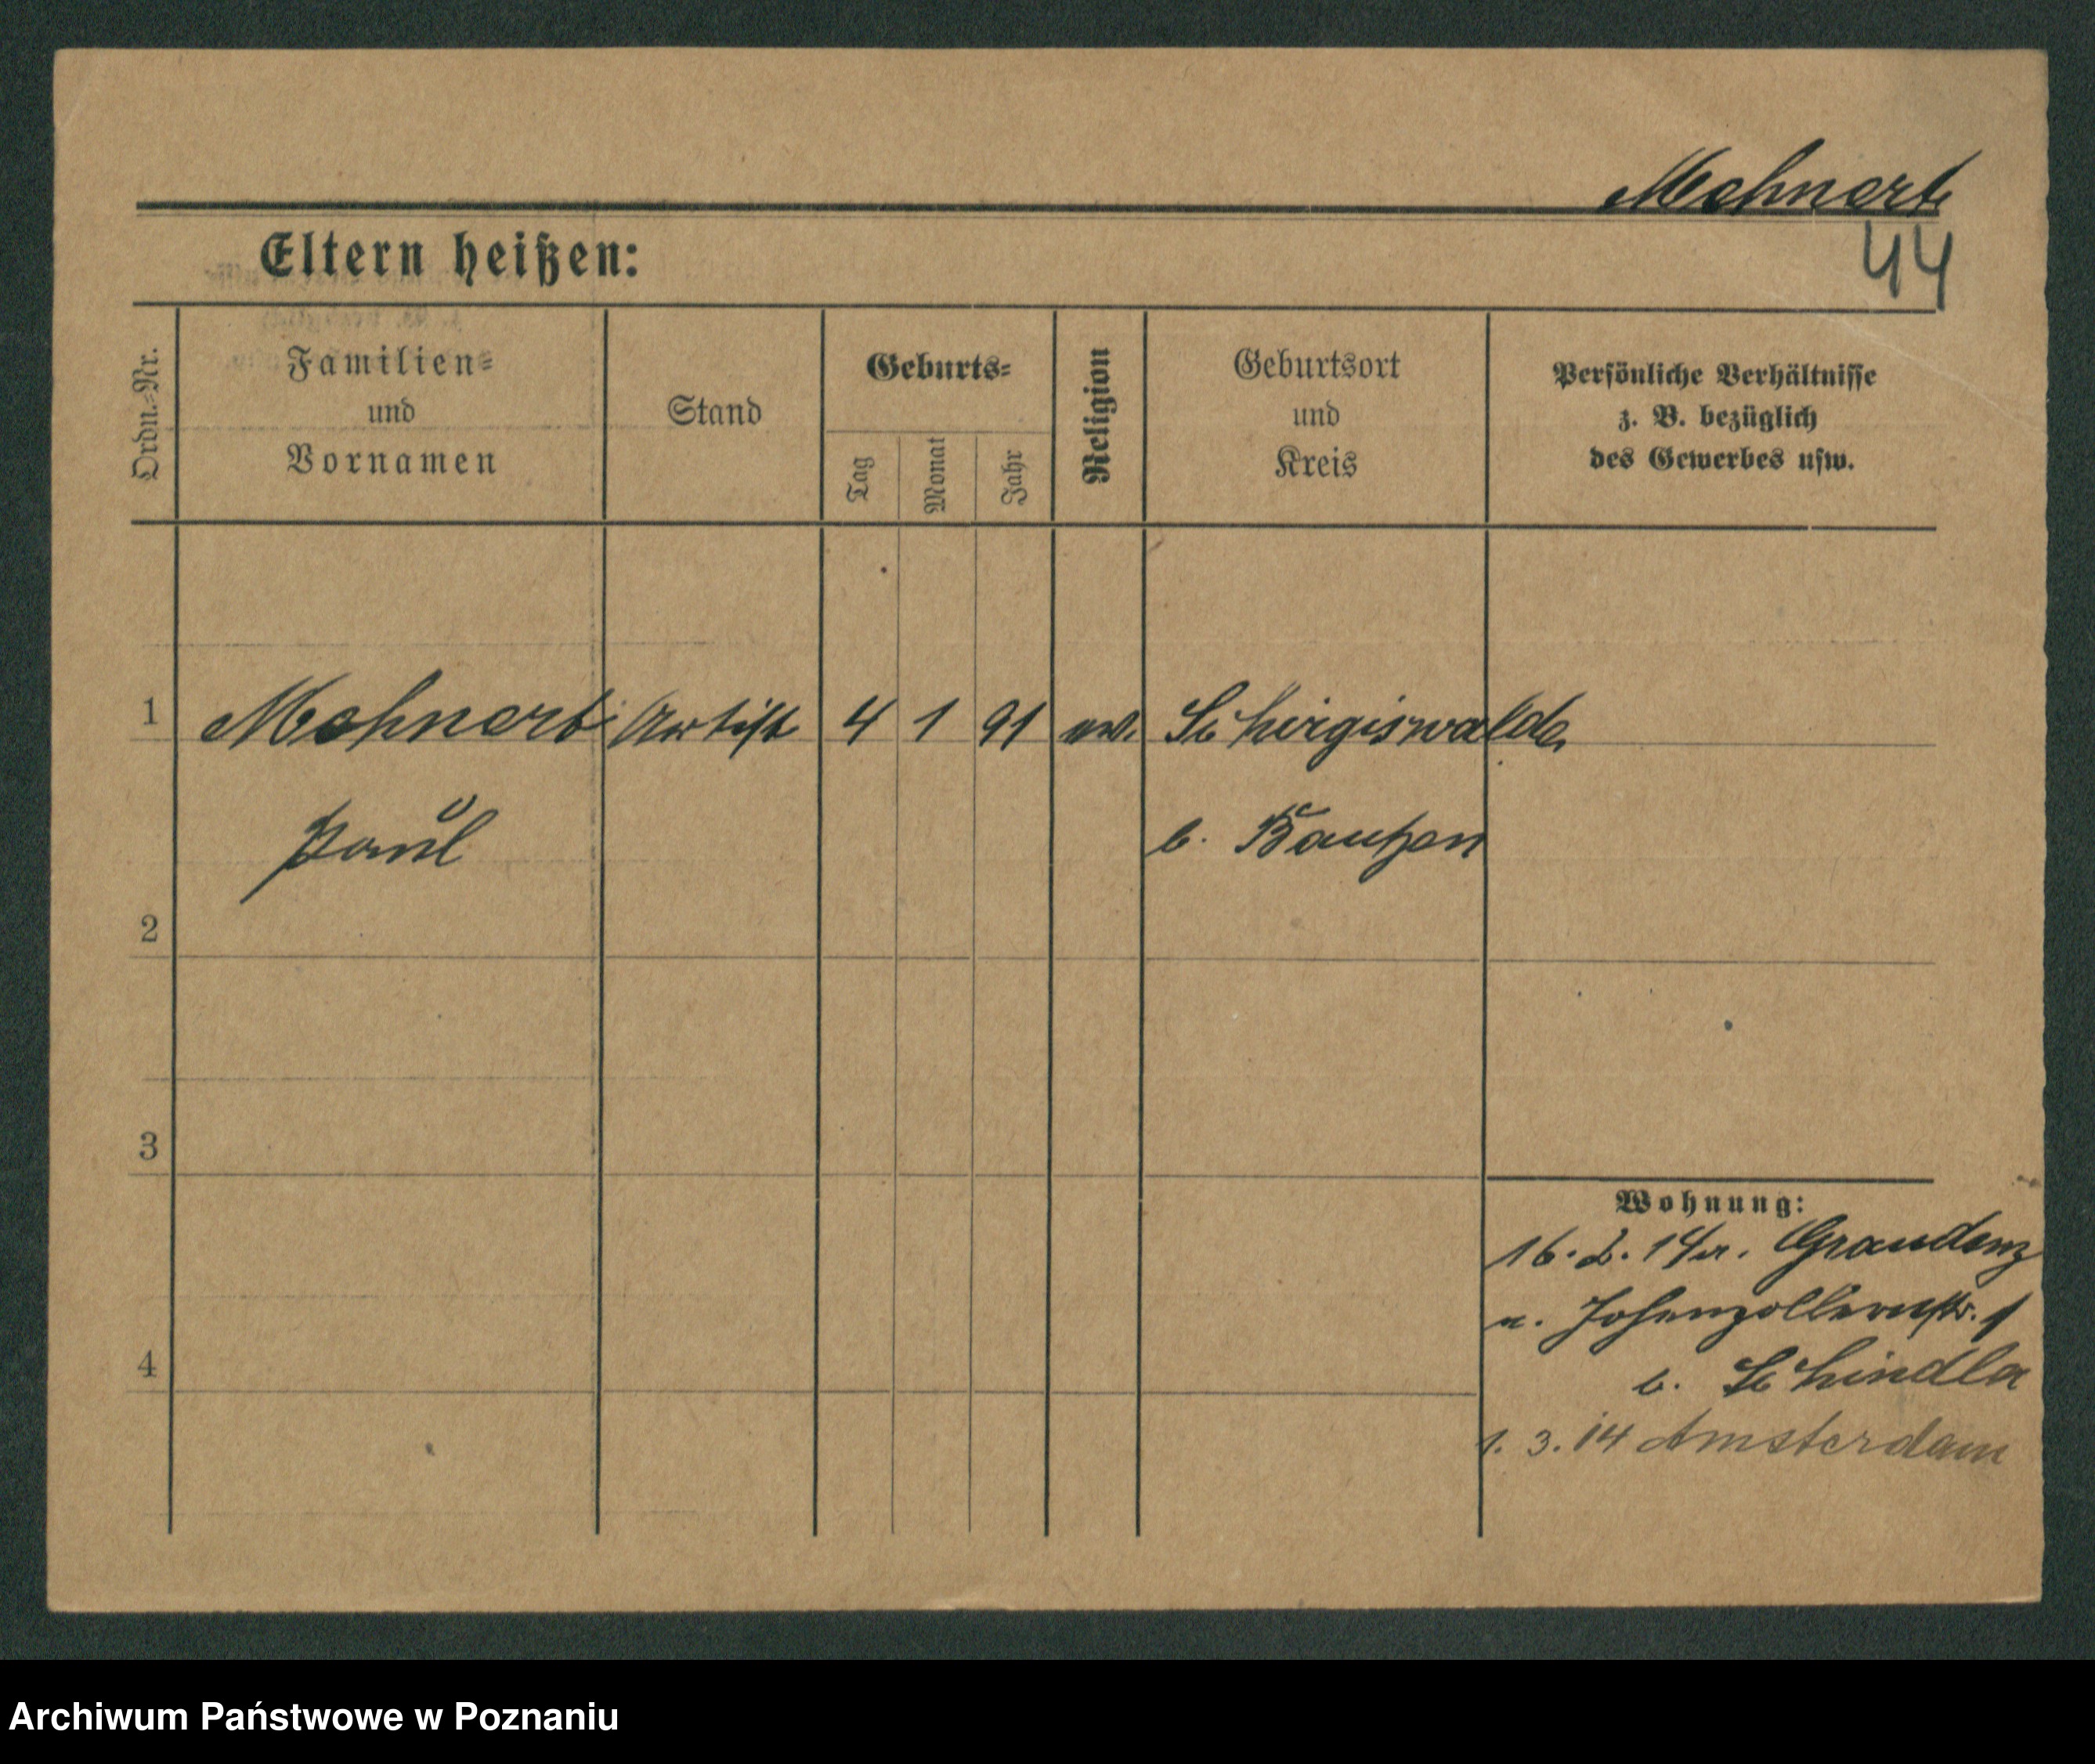 Mehnert
44
Eltern heißen:
Ordn.-Nr.
Familien-
und
Vornamen
Stand
Geburts-
Tag
Monat
Jahr
Religion
Geburtsort
und
Kreis
Persönliche Verhältnisse
z. B. bezüglich
des Gewerbes usw.
1 Mehnert Artist 4 1 91 ev. Schirgiswalde
Paul b. Bautzen
2
3
4
Wohnung:
16. 2. 14 Graudenz
n. Hohenzollernstr. 1
b. Schindler
1. 3. 14 Amsterdam
Archiwum Państwowe w Poznaniu